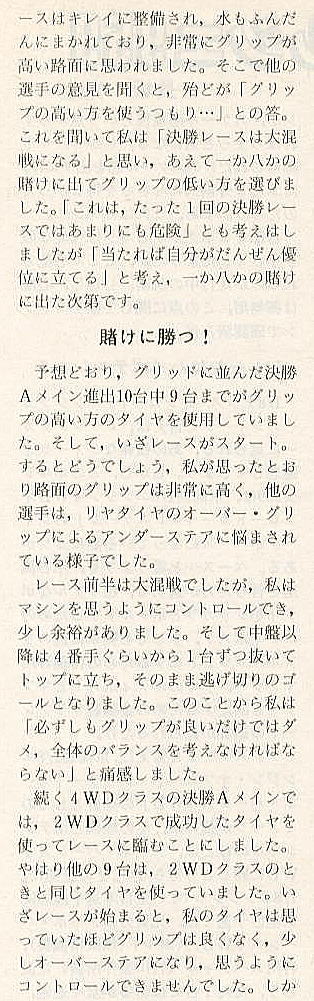 ースはキレイに整備され，水もふんだ
んにまかれており，非常にグリップが
高い路面に思われました。そこで他の
選手の意見を聞くと，殆どが「グリッ
プの高い方を使うつもり…」との答。
これを聞いて私は「決勝レースは大混
戦になる」と思い，あえて一か八かの
賭けに出てグリップの低い方を選びま
した。「これは，たった１回の決勝レー
スではあまりにも危険」とも考えはし
ましたが「当たれば自分がだんぜん優
位に立てる」と考え，一か八かの賭け
に出た次第です。
賭けに勝つ！
予想どおり，グリッドに並んだ決勝
Ａメイン進出10台中９台までがグリッ
プの高い方のタイヤを使用していまし
た。そして，いざレースがスタート。
するとどうでしょう，私が思ったとお
り路面のグリップは非常に高く，他の
選手は，リヤタイヤのオーバー・グリ
ップによるアンダーステアに悩まされ
ている様子でした。
レース前半は大混戦でしたが，私は
マシンを思うようにコントロールでき，
少し余裕がありました。そして中盤以
降は４番手ぐらいから１台ずつ抜いて
トップに立ち，そのまま逃げ切りのゴ
ールとなりました。このことから私は
「必ずしもグリップが良いだけではダ
メ，全体のバランスを考えなければな
らない」と痛感しました。
続く４ＷＤクラスの決勝Ａメインで
は，２ＷＤクラスで成功したタイヤを
使ってレースに臨むことにしました。
やはり他の９台は，２ＷＤクラスのと
きと同じタイヤを使っていました。い
ざレースが始まると，私のタイヤは思
っていたほどグリップは良くなく，少
しオーバーステアになり，思うように
コントロールできませんでした。しか